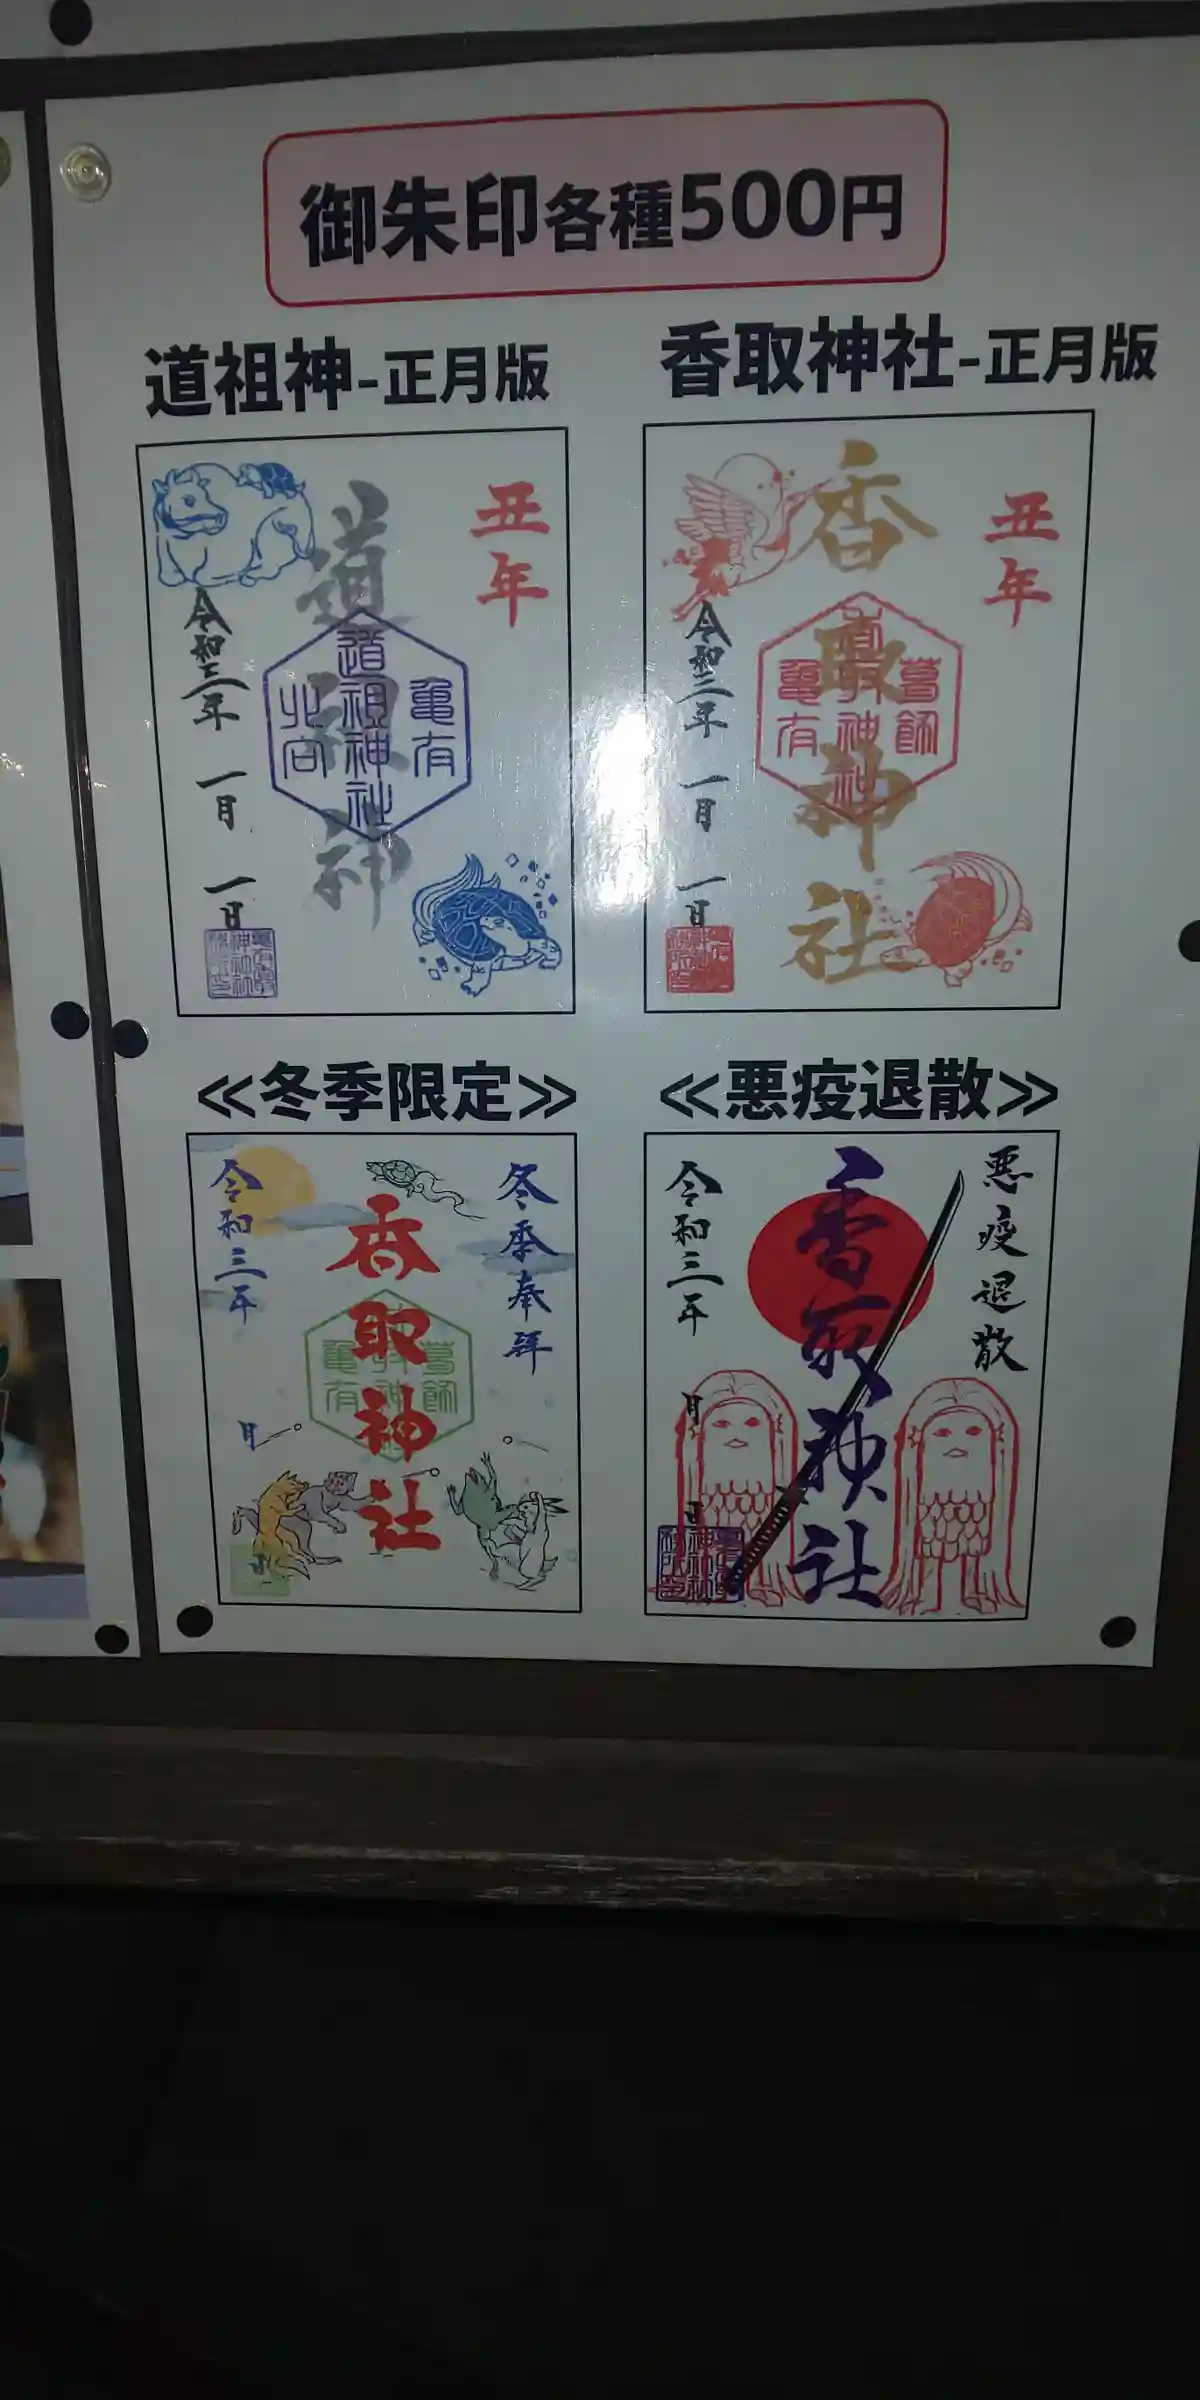 御朱印各種500円
道祖神-正月版
香取神社-正月版
丑年
道祖神
亀有
道祖神社
北向
令和三年 一月 一日
丑年
香取神社
葛飾
香取神社
亀有
令和三年 一月 一日
≪冬季限定≫
≪悪疫退散≫
冬季奉拝
香取神社
葛飾
亀有
令和三年
月
悪疫退散
香取神社
令和三年
月
日